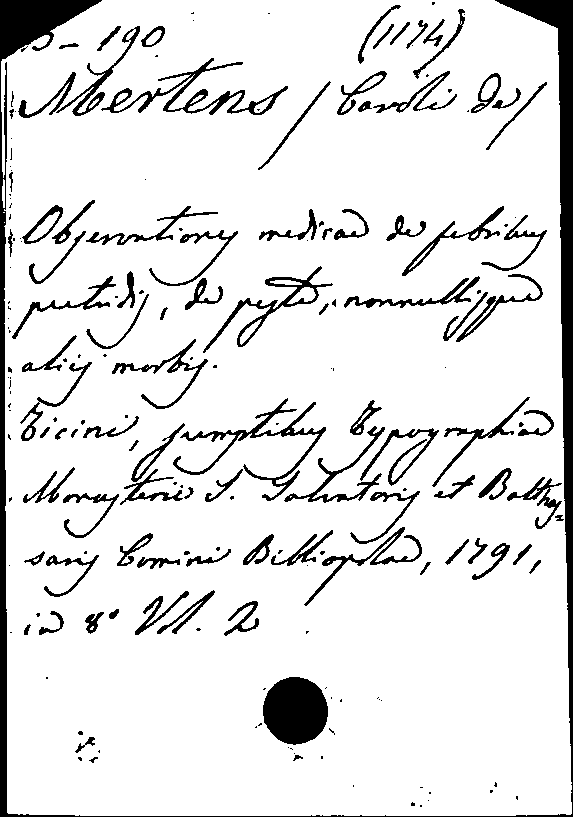 B - 190 (1174)
Mertens / Caroli de /
Observationes medicae de febribus
putridis, de peste, nonnullisque
aliis morbis.
Ticini, sumptibus Typographiae
Monasterii S. Salvatoris et Baltha=
saris Comini Bibliopolae, 1791,
in 8° Vol. 2